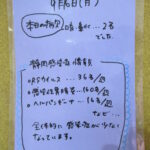 9月16日(月)
本日の病欠
2名
でした.
静岡感染症情報
RSウイルス … 36名/週
感染性胃腸炎…160名/週
ヘルパンギーナ … 16名/週
など…
全体的に感染症が少なく
なっています。